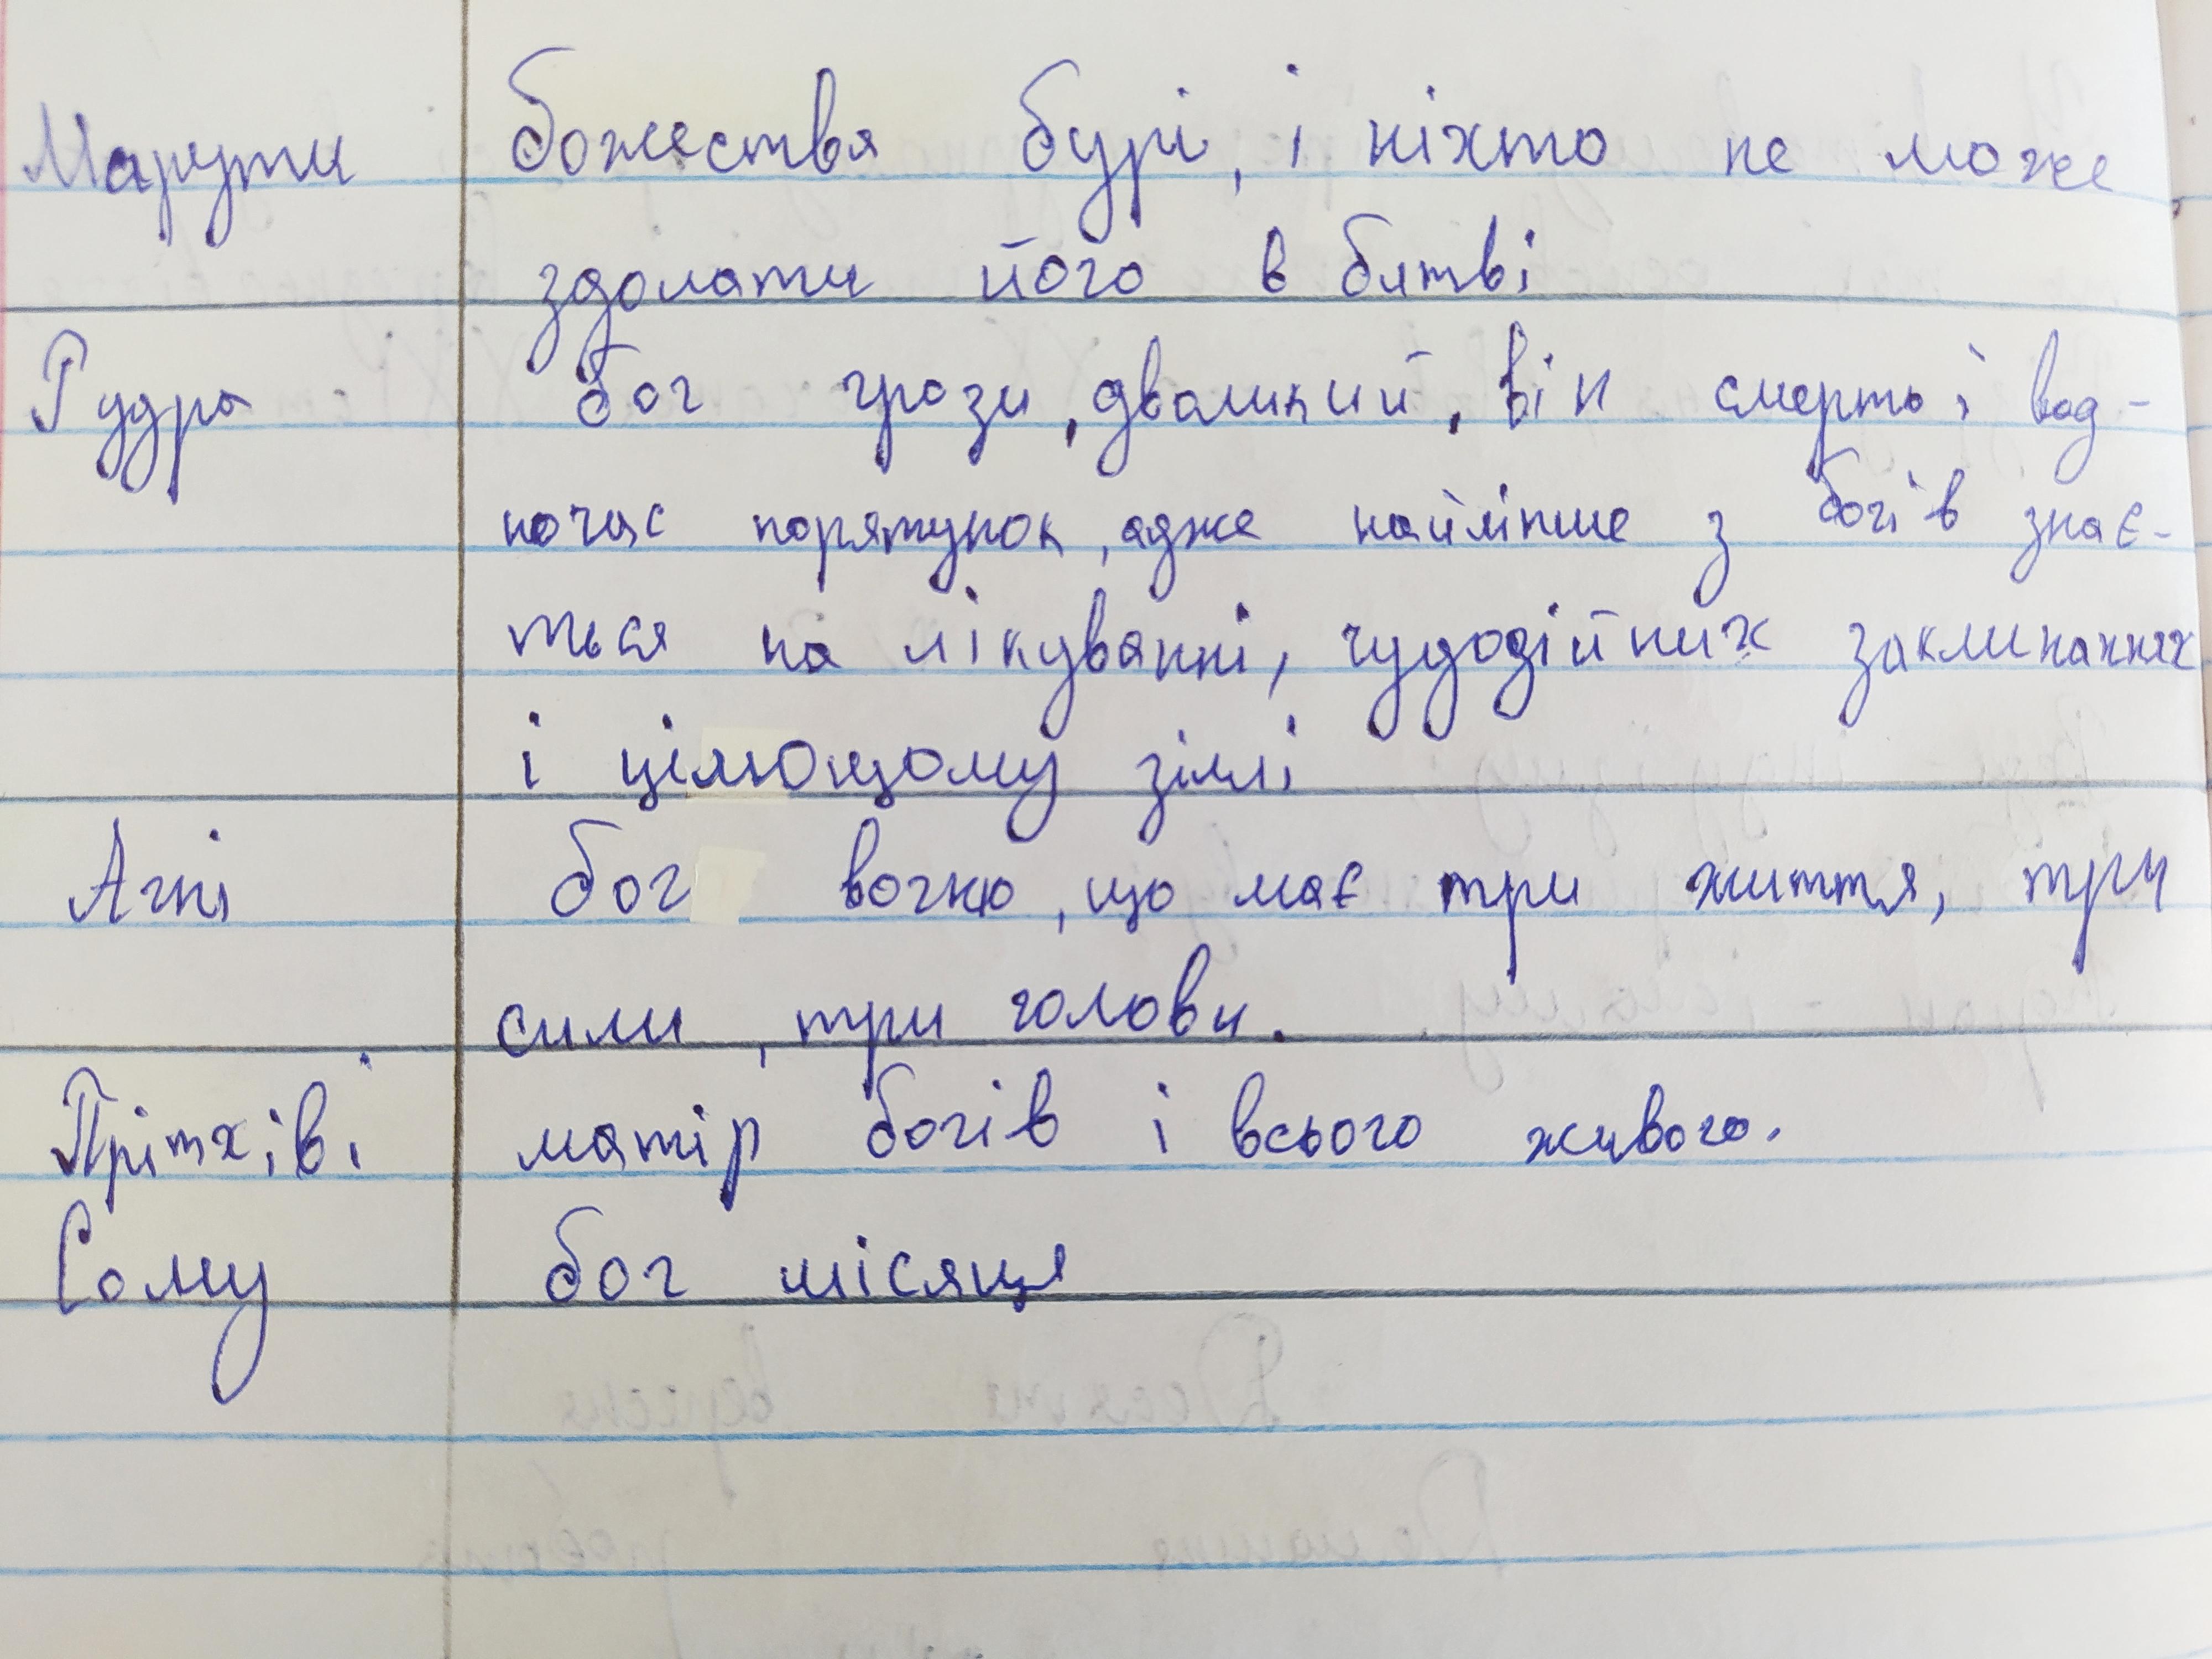 Марути божества бурі, і ніхто не може
здолати його в битві
Рудра бог грози, дволикий, він смерть і вод-
ночас порятунок, адже найліпше з богів знає-
ться на лікуванні, чудодійних заклинаннях
і цілющому зіллі
Агні бог вогню, що має три життя, три
сили, три голови.
Прітхіві матір богів і всього живого.
Сому бог місяця